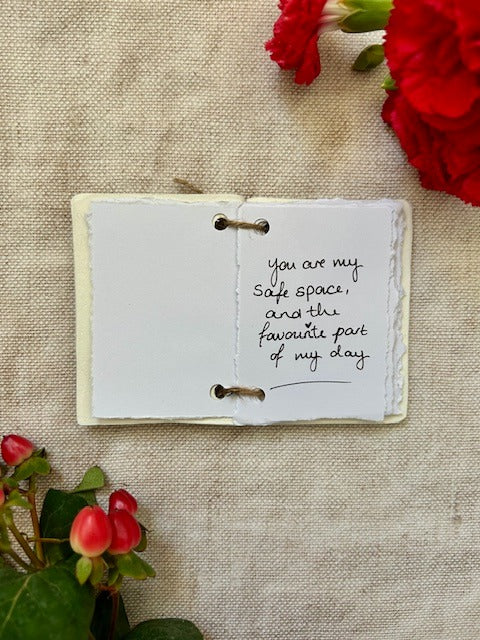 you are my
safe space,
and the
favourite part
of my day